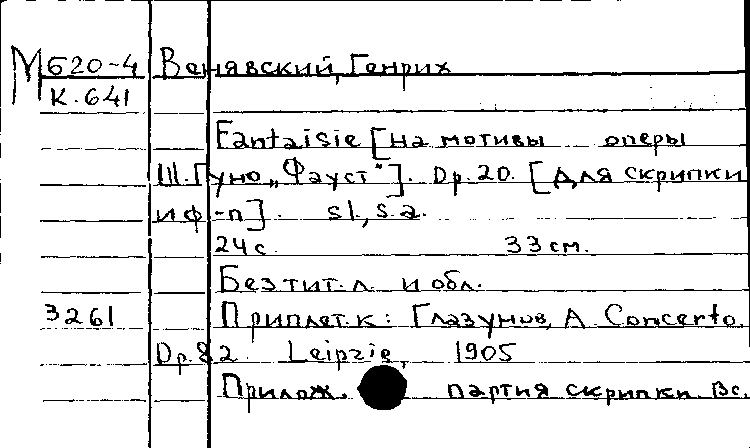 М620-4 Венявский, Генрих
К.641
Fantaisie [на мотивы оперы
Ш. Гуно „Фауст"]. Op. 20. [Для скрипки
и ф-п]. s.l., s.a.
24 с. 33 см.
Без тит. л. и обл.
3261 Приплет. к: Глазунов, А Concerto.
Op. 82 Leipzig, 1905
Прилож. партия скрипки. Вс.